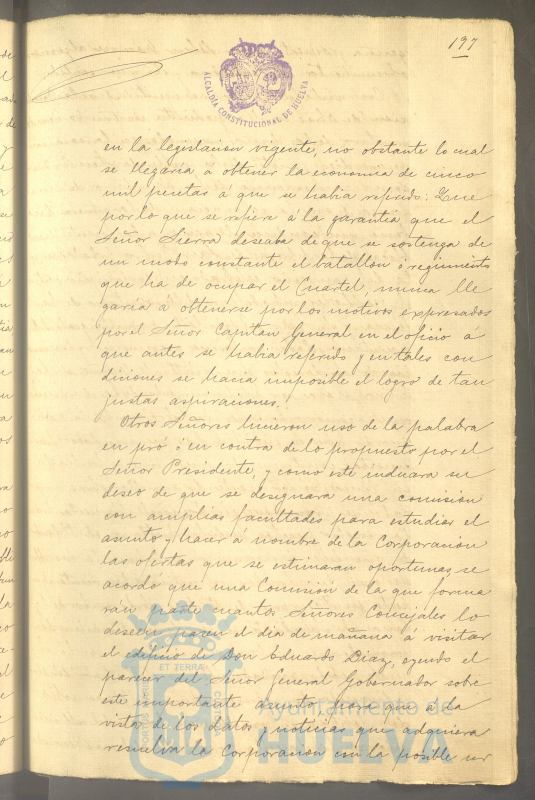 197
ALCALDÍA CONSTITUCIONAL DE HUELVA
en la legislacion vigente, no obstante lo cual
se llegaria á obtener la economia de cinco
mil pesetas á que se habia referido: Que
por lo que se refiere á la garantia que el
Señor Sierra deseaba de que se sostenga de
un modo constante el batallon ó regimiento
que ha de ocupar el Cuartel, nunca lle
garia á obtenerse por los motivos expresados
por el Señor Capitan General en el oficio á
que antes se habia referido y en tales con
diciones se hacia imposible el logro de tan
justas aspiraciones.
Otros Señores hicieron uso de la palabra
en pró ó en contra de lo propuesto por el
Señor Presidente, y como este indicara su
deseo de que se designara una comision
con amplias facultades para estudiar el
asunto y hacer á nombre de la Corporacion
las ofertas que se estimaran oportunas, se
acordó que una Comision de la que forma
ran parte cuantos Señores Concejales lo
deseen pasen el dia de mañana á visitar
el edificio de Don Eduardo Diaz, oyendo el
parecer del Señor General Gobernador sobre
este importante asunto, para que á la
vista de los datos y noticias que adquiera
resuelva la Corporacion con la posible ur
ET TERRAE
PORTUS MARIS
CUSTODIO
Ayuntamiento de
HUELVA